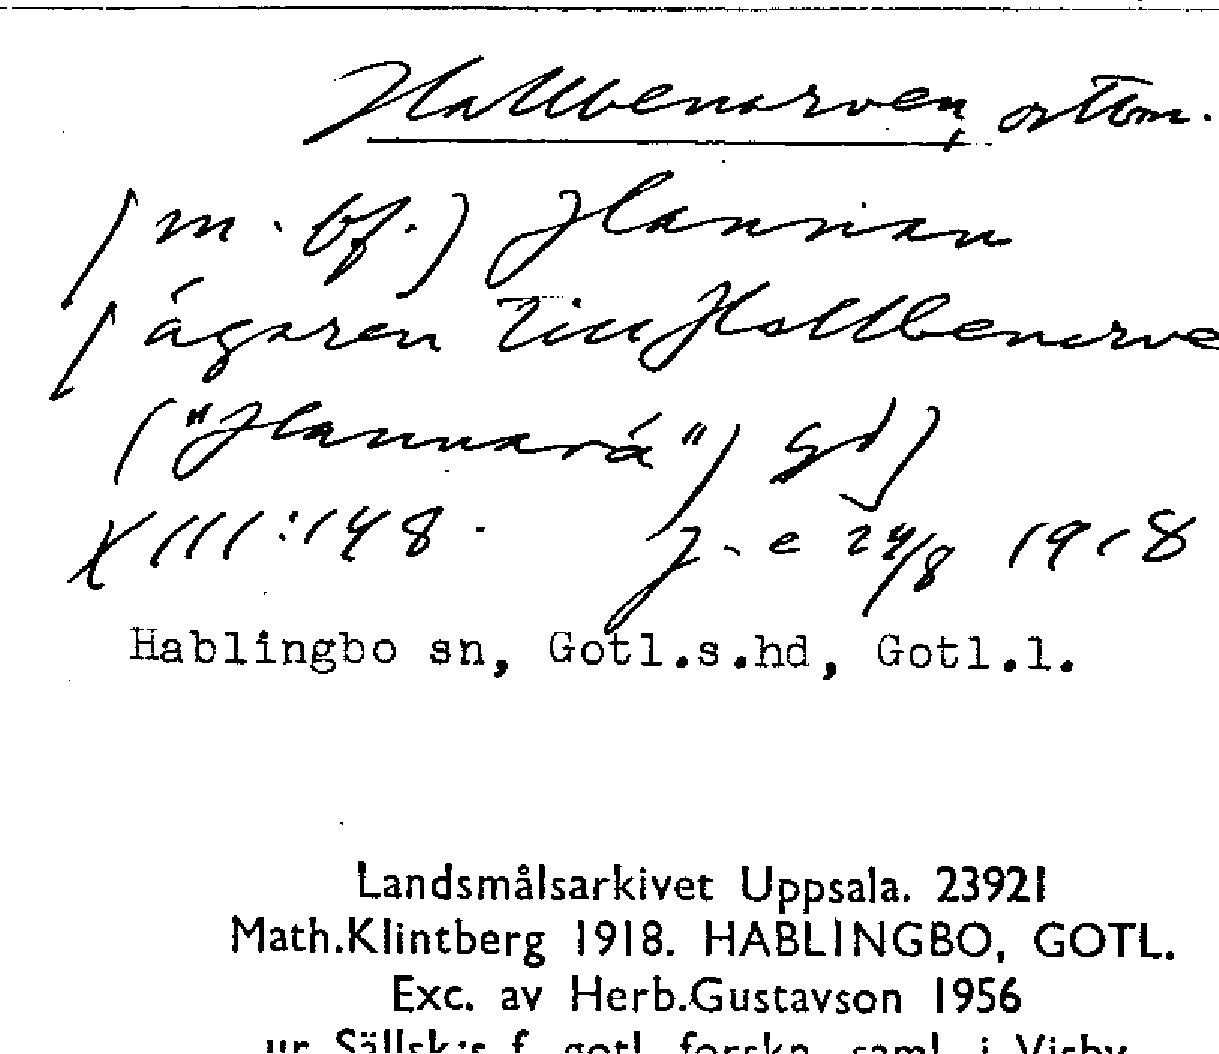 Hallbenarven, ortbn.
(m. bf.) Hannian
(ägaren till Hallbenarve
("Hannará") Gd)
XIII:148. J-e 24/8 1918
Hablingbo sn, Gotl.s.hd, Gotl.l.
Landsmålsarkivet Uppsala. 23921
Math.Klintberg 1918. HABLINGBO, GOTL.
Exc. av Herb.Gustavson 1956
ur Sällsk:s f. gotl. forskn. saml. i Visby